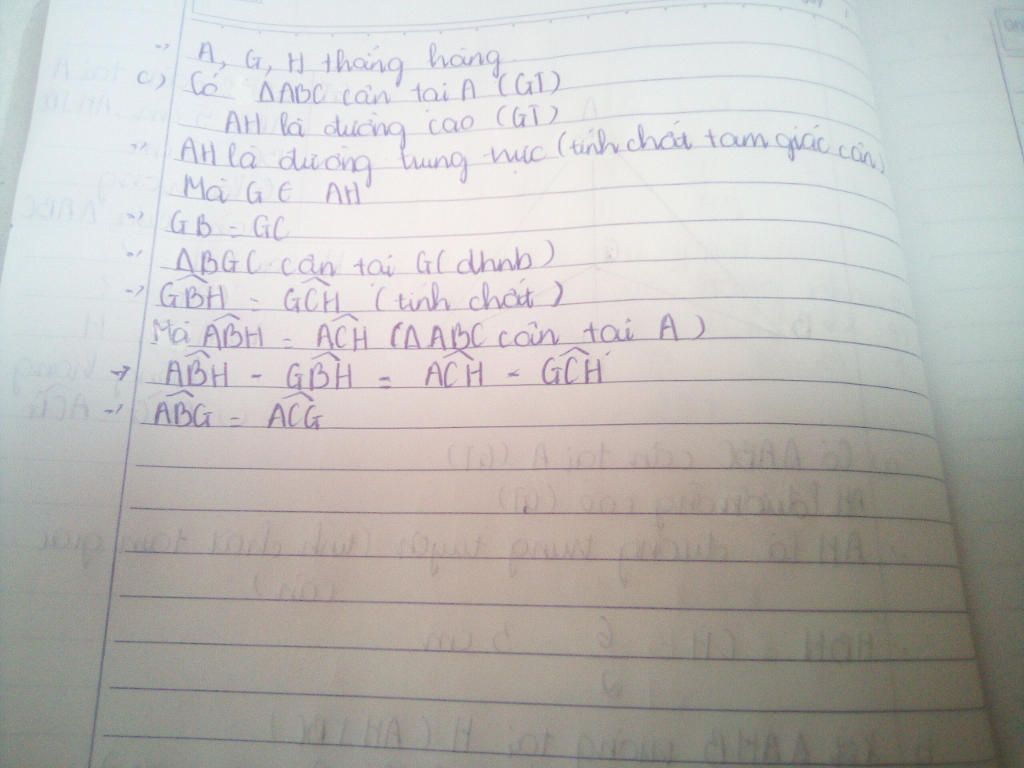 -> A, G, H thẳng hàng
c) Có ΔABC cân tại A (GT)
AH là đường cao (GT)
-> AH là đường trung trực (tính chất tam giác cân)
Mà G ∈ AH
-> GB = GC
-> ΔBGC cân tại G (dhnb)
-> \widehat{GBH} = \widehat{GCH} (tính chất)
Mà \widehat{ABH} = \widehat{ACH} (ΔABC cân tại A)
-> \widehat{ABH} - \widehat{GBH} = \widehat{ACH} - \widehat{GCH}
-> \widehat{ABG} = \widehat{ACG}